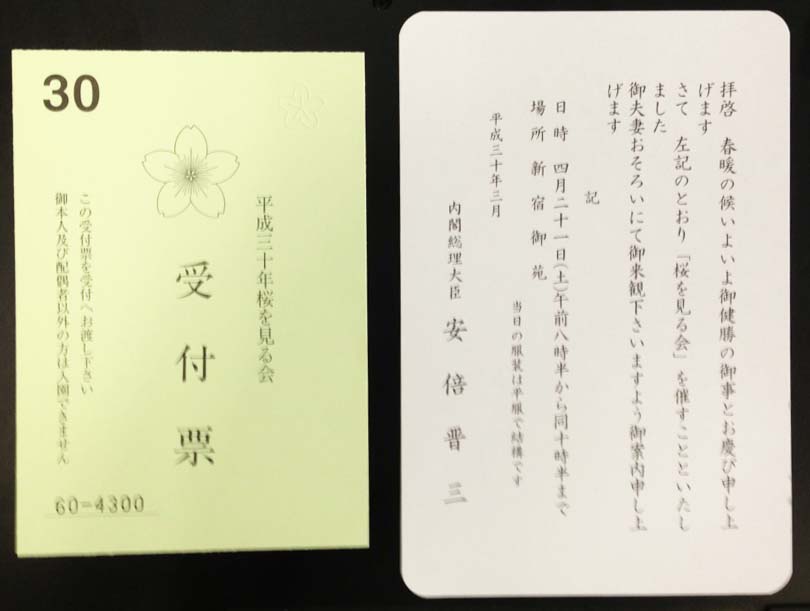 30
平成三十年桜を見る会
受付票
この受付票を受付へお渡し下さい
御本人及び配偶者以外の方は入園できません
60-4300
拝啓　春暖の候いよいよ御健勝の御事とお慶び申し上
げます
さて　左記のとおり「桜を見る会」を催すことといたし
ました
御夫妻おそろいにて御来観下さいますよう御案内申し上
げます
記
日時　四月二十一日(土)午前八時半から同十時半まで
場所　新宿御苑
当日の服装は平服で結構です
平成三十年三月
内閣総理大臣　安倍晋三